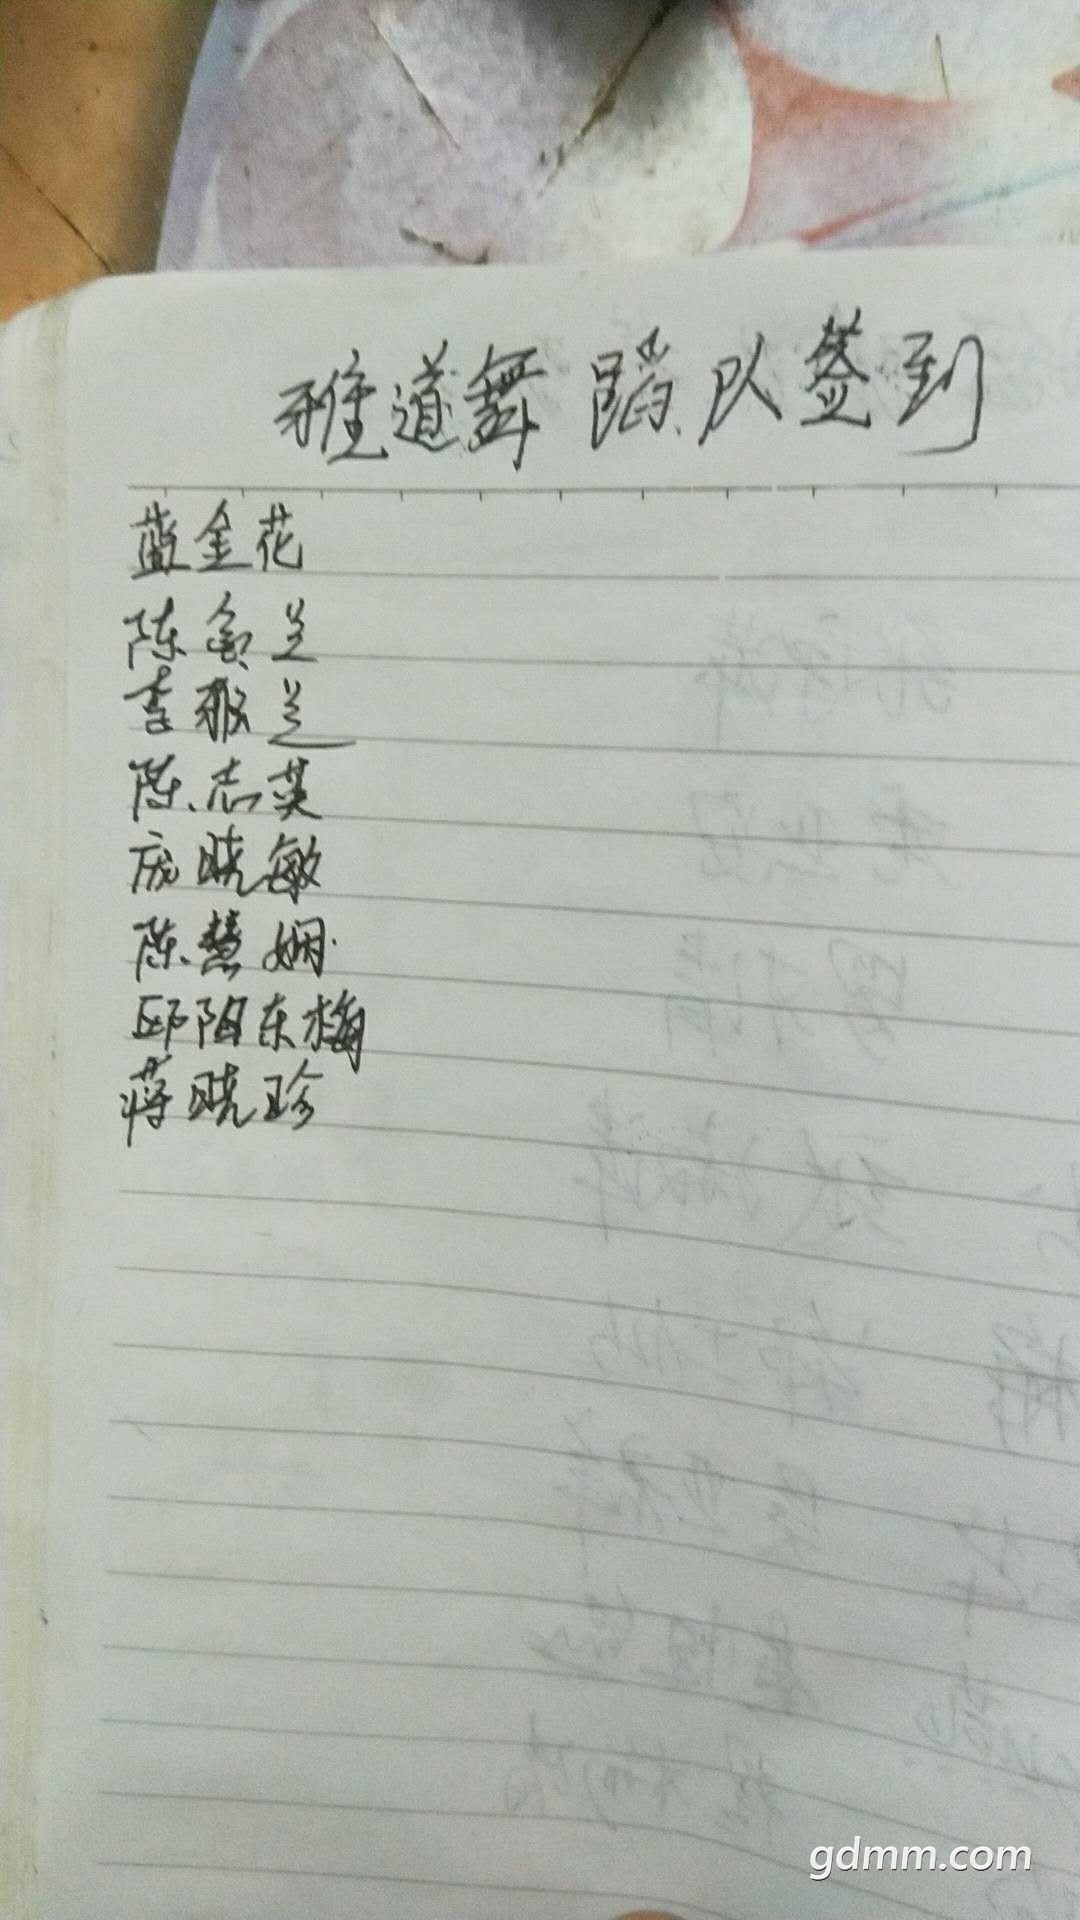 雅道舞蹈队签到
蓝金花
陈兰
李雅兰
陈志英
庞晓敏
陈慧娴
邱阳东梅
蒋晓珍
gdmm.com